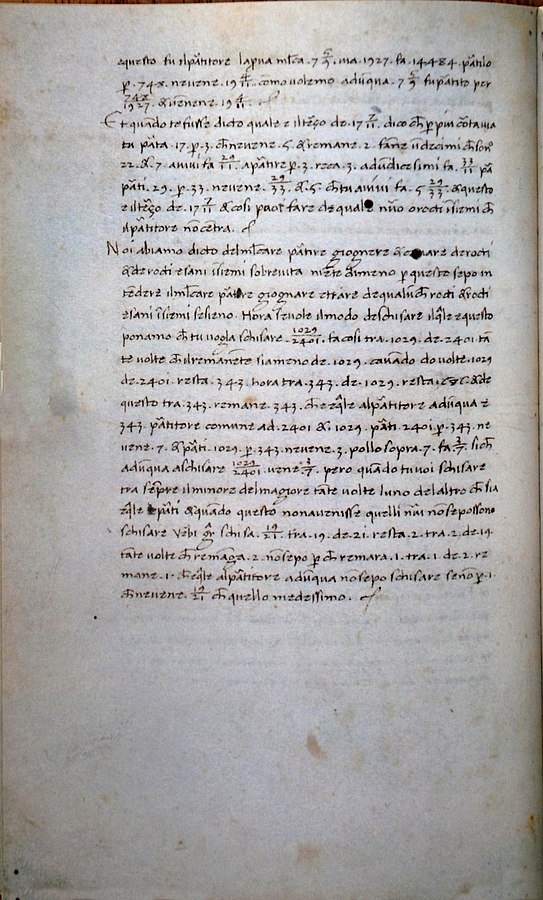 equesto fu ilpãtitore lapua mlca . 7 5/9 . via . 1927 . fa . 14484 . pãtilo
p . 748 . nevene . 19 4/11 . comovolemo adũqua . 7 5/9 fu partito per
748/1927 . & venene . 19 4/11 .
Et quando te fusse dicto quale e iltẽço de . 17 7/11 . dico ch p piu cõtavia
tu pãta . 17 . p . 3 . ch nevene . 5 . & remane . 2 . fane ũdecimi ch son
22 . & . 7 . avivi fa 29/11 . apãtire p . 3 . reca . 3 . adũdicesimi fa . 33/11 pã
pãti . 29 . p . 33 . nevene . 29/33 . & . 5 . ch tu avivi fa . 5 29/33 & questo
e iltẽço de . 17 7/11 & cosi puoi fare de quale nũo o rocti ĩsiemi ch
ilpãtitore no cẽtra .
Noi abiamo dicto delmlcare pãtire giognere & trare de rocti
& de rocti e sani ĩsiemi sobrevita niẽte dimeno p queste se po in
tẽdere ilmlcare pãtire giognare e trare de qualũch rocti & rocti
e sani ĩsiemi sesieno . Hora se vole ilmodo deschisare ilqle e questo
ponamo ch tu voglia schisare . 1029/2401 . fa cosi tra . 1029 . de . 2401 tã
te volte ch ilremanẽte sia meno de . 1029 . cavãdo do volte . 1029
de . 2401 . resta . 343 . hora tra . 343 . de . 1029 . resta . 686 & de
questo tra . 343 . remane . 343 . ch e eq̃le alpãtitore adũqua e
343 . pãtitore comune ad . 2401 & 1029 . pãti . 2401 . p . 343 . ne
vene . 7 . & pãti . 1029 . p . 343 . nevene . 3 . pollo sopra . 7 . fa 3/7 . sich
adũqua a schisare 1029/2401 . vene 3/7 . pero quãdo tu voi schisare
tra sẽpre ilminore del magiore tãte volte luno del altro ch sia
eq̃le pãti & quãdo questo non avenisse quelli nũi no se possono
schisare Verbi gr̃ schisa . 19/21 . tra . 19 . de . 21 . resta . 2 . tra . 2 . de . 19 .
tãte volte ch remaga . 2 . nõ se po p ch remara . 1 . tra . 1 . de . 2 . re
mane . 1 . ch eq̃le alpãtitore adũqua nõ se po schisare se nõ p . 1 .
ch nevene . 19/21 ch quello medessimo .